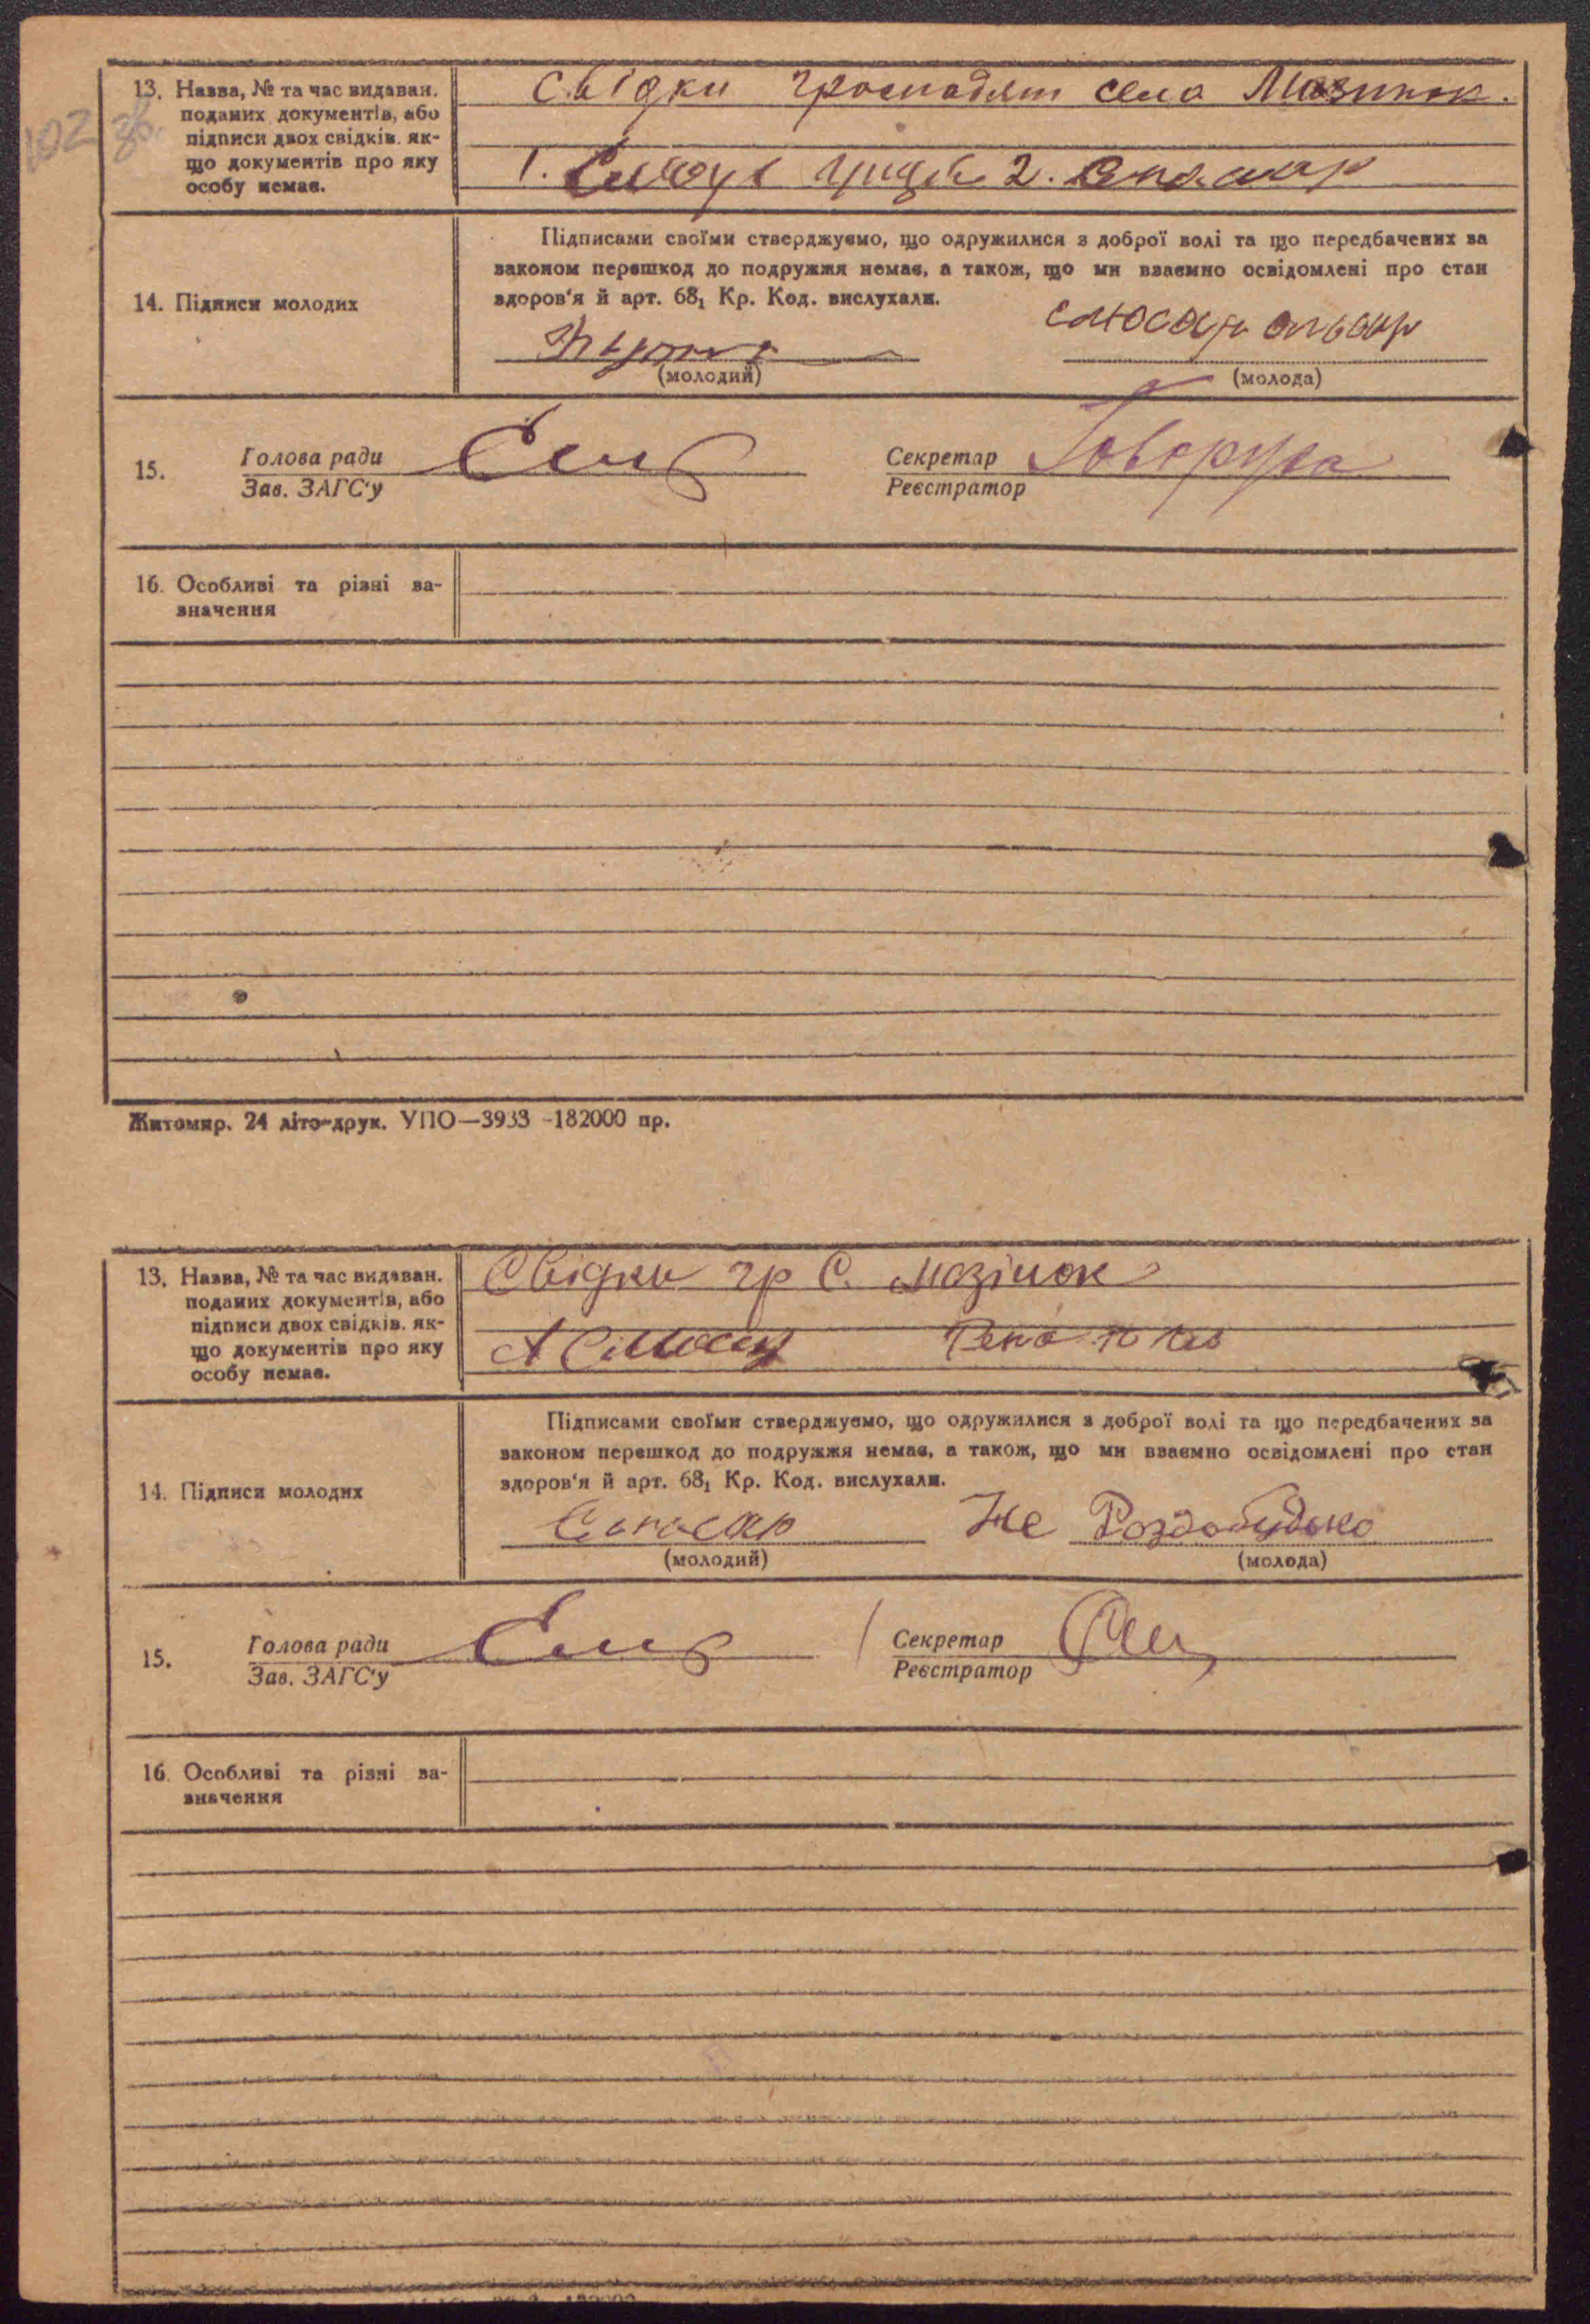 102 зв.
13. Назва, № та час видаван.
поданих документів, або
підписи двох свідків, як-
що документів про яку
особу немає.
Свідки громадян села Мазинок.
1. 2.
14. Підписи молодих
Підписами своїми стверджуємо, що одружилися з доброї волі та що передбачених за
законом перешкод до подружжя немає, а також, що ми взаємно освідомлені про стан
здоров'я й арт. 68₁ Кр. Код. вислухали.
слюсар
(молодий) (молода)
15. Голова ради Секретар
Зав. ЗАГС'у Реєстратор
16. Особливі та різні за-
значення
Житомир. 24 літо-друк. УПО—3933 -182000 пр.
13. Назва, № та час видаван.
поданих документів, або
підписи двох свідків. як-
що документів про яку
особу немає.
Свідки гр с. Мазінок
14. Підписи молодих
Підписами своїми стверджуємо, що одружилися з доброї волі та що передбачених за
законом перешкод до подружжя немає, а також, що ми взаємно освідомлені про стан
здоров'я й арт. 68₁ Кр. Код. вислухали.
Не Роздобудько
(молодий) (молода)
15. Голова ради Секретар
Зав. ЗАГС'у Реєстратор
16. Особливі та різні за-
значення